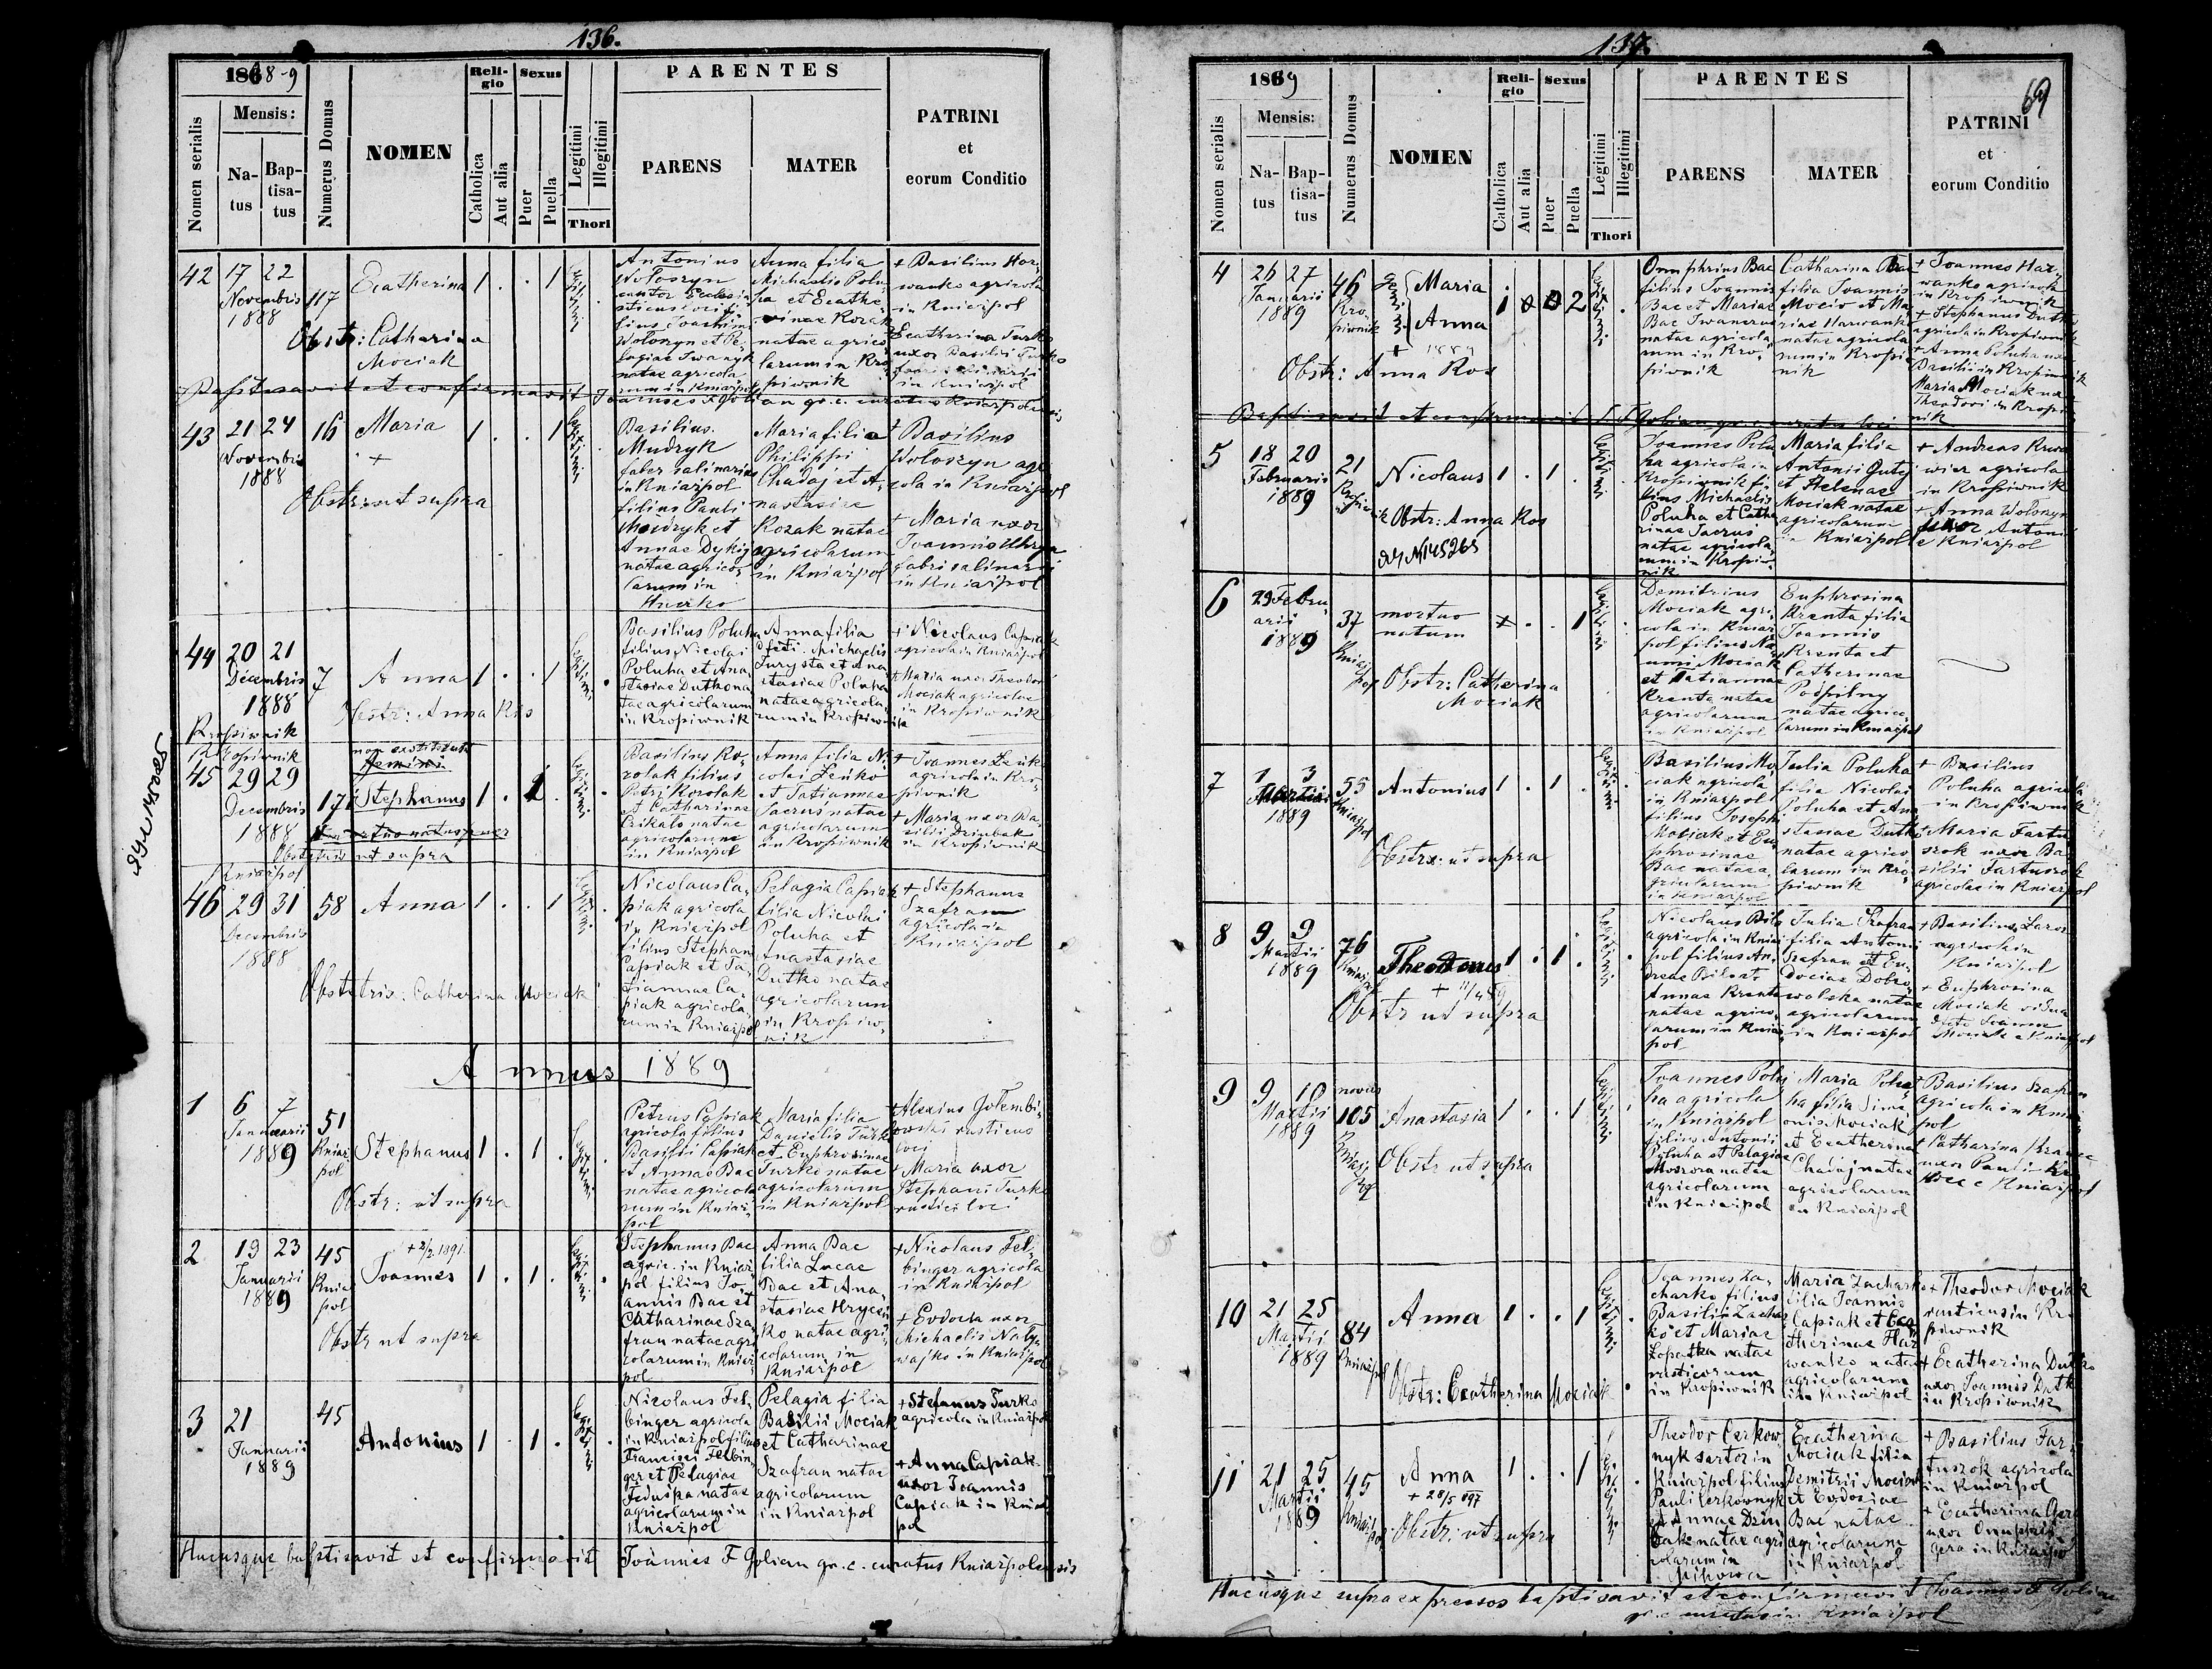 136.
188 8-9
Nomen serialis
Mensis:
Na-
tus
Bap-
tisa-
tus
Numerus Domus
NOMEN
Reli-
gio
Catholica
Aut alia
Sexus
Puer
Puella
Legitimi
Illegitimi
Thori
PARENTES
PARENS
MATER
PATRINI
et
eorum Conditio
42
17 22
Novembris
1888
117
Ecatherina
1 . . 1
Obstr: Catharina
Mociak
Antonius
Wołoszyn
cantor Eccles
Wołoszyn et Pe-
lagiae Iwanyk
natae agricola
rum in Kniażpol
Anna filia
Michaelis Polu-
ha et Ecathe-
rinae Kozak
natae agrico
larum in Kro-
piwnik
+ Basilius Har-
wanko agricola
in Kniażpol
Ecatherina Turko
uxor Basilii Turko
in Kniażpol
Baptisavit et confirmavit Joannes F Golian gr. c. curatus Kniażpolensis
43
21 24
Novembris
1888
16
Maria
+
1 . . 1
Obstr: ut supra
Basilius
Mudryk
faber salinarius
in Kniażpol
filius Pauli
Mudryk et
Annae Dykij
natae agrico-
larum in
Huczko
Maria filia
Philippi
Chadaj et A-
nastasiae
Kozak natae
agricolarum
in Kniażpol
+ Basilius
Wołoszyn agri
cola in Kniażpol
+ Maria uxor
Joannis Uhryn
fabri salinarii
in Kniażpol
44
20 21
Decembris
1888
Kropiwnik
7
Anna
1 . . 1
Obstr: Anna Kos
Basilius Poluha
filius Nicolai
Poluha et Ana-
stasiae Dutko na
tae agricolarum
in Kropiwnik
Anna filia
defti. Michaelis
Jurysta et Ana
stasiae Poluha
natae agricola-
rum in Kropiwnik
+ Nicolaus Capiak
agricola in Kniażpol
+ Maria uxor Theodori
Mociak agricolae
in Kropiwnik
Kropiwnik
45
29 29
Decembris
1888
17
Stephanus
1 . 1 .
mortuo natus puer
Obstetrix ut supra
Basilius Ko-
rolak filius
Petri Korolak
et Catharinae
Cikało natae
agricolarum
in Kniażpol
Anna filia Ni
colai Łeńko
et Tatiannae
Jacruś natae
agricolarum
in Kropiwnik
+ Joannes Łeńko
agricola in Kro-
piwnik
+ Maria uxor Ba-
silii Dziubak
in Kropiwnik
Kniażpol
46
29 31
Decembris
1888
58
Anna
1 . . 1
Obstetrix: Catherina Mociak
Nicolaus Ca-
piak agricola
in Kniażpol
filius Stephani
Capiak et Ta-
tiannae Ca-
piak agricola-
rum in Kniażpol
Pelagia Capiak
filia Nicolai
Poluha et
Anastasiae
Dutko natae
agricolarum
in Kropiw-
nik
+ Stephanus
Szafran
agricola in
Kniażpol
Annus 1889
1
6 7
Januarii
1889
51
Kniaż
pol
Stephanus
1 . 1 .
Obstr: ut supra
Petrus Capiak
agricola filius
Basilii Capiak
et Annae Bac
natae agricola
rum in Kniaż-
pol
Maria filia
Danielis Turko
et Euphrosinae
Turko natae
agricolarum
in Kniażpol
+ Alexius Gołembi-
owski rusticus
loci
+ Maria uxor
Stephani Turko
rustici loci
2
19 23
Januarii
1889
45
Kniaż
pol
+ 2/2 1891.
Joannes
1 . 1 .
Obstr ut supra
Stephanus Bac
agric. in Kniaż-
pol filius Jo-
annis Bac et
Catharinae Sza-
fran natae agri
colarum in Kniaż
pol
Anna Bac
filia Lucae
Bac et Ana-
stasiae Hryceń
ko natae agri-
colarum in
Kniażpol
+ Nicolaus Fel-
binger agricola
in Kniażpol
+ Evdocia uxor
Michaelis Naly-
wajko in Kniażpol
3
21
Januarii
1889
45
Antonius
1 . 1 .
Nicolaus Fel-
binger agricola
in Kniażpol filius
Francisci Felbin-
ger et Pelagiae
Feduśka natae
agricolarum in
Kniażpol
Pelagia filia
Basilii Mociak
et Catharinae
Szafran natae
agricolarum
in Kniażpol
+ Stefanus Turko
agricola in Kniażpol
+ Anna Capiak
uxor Joannis
Capiak in Kniaż
pol
Hucusque baptisavit et confirmavit Joannes F Golian gr. c. curatus Kniażpolensis
137.
69
1889
Nomen serialis
Mensis:
Na-
tus
Bap-
tisa-
tus
Numerus Domus
NOMEN
Reli-
gio
Catholica
Aut alia
Sexus
Puer
Puella
Legitimi
Illegitimi
Thori
PARENTES
PARENS
MATER
PATRINI
et
eorum Conditio
4
26 27
Januarii
1889
46
Kro-
piwnik
Maria
Anna
+ 1889
1 0 0 2
Obstr: Anna Kos
Onuphrius Bac
filius Joannis
Bac et Mariae
Bac
natae agricola
rum in Kro-
piwnik
Catharina Bac
filia Joannis
Mocio et Ma-
riae Harwanko
natae agricola
rum in Kropiw
nik
+ Joannes Har-
wanko agricola
in Kropiwnik
+ Stephanus Dutko
agricola in Kropiwnik
+ Anna Poluha uxor
Basilii in Kropiwnik
Maria Mociak uxor
Theodori in Kropiw
nik
Baptisavit et confirmavit J F Golian gr. c. curatus loci
5
18 20
Februarii
1889
21
Nicolaus
1 . 1 .
Obstr: Anna Kos
Joannes Polu
ha agricola in
Kropiwnik fi-
lius Michaelis
Poluha et Catha
rinae Jacruś
natae agricola-
rum in Kropiw-
nik
Maria filia
Antonii Gutej
et Helenae
Mociak natae
agricolarum
in Kniażpol
+ Andreas
agricola
in Kropiwnik
+ Anna Wołoszyn
uxor Antoni
e Kniażpol
6
29 Febru-
arii
1889
37
Kniaż
pol
mortuo
natum
. . 1
Obstr: Catherina
Mociak
Demitrius
Mociak agri-
cola in Kniaż-
pol filius
Mociak
et Tatiannae
Krenta natae
agricolarum
in Kniażpol
Euphrosina
Krenta filia
Joannis
Krenta et
Catherinae
Podpilny
natae agrico-
larum in Kniażpol
7
1 3
Martii
1889
55
Kniażpol
Antonius
1 . 1 .
Obstrx: ut supra
Basilius Mo-
ciak agricola
in Kniażpol
filius Josephi
Mociak et Eu-
phrosinae
Bac natae a-
gricolarum
in Kniażpol
Julia Poluha
filia Nicolai
Poluha et Ana
stasiae Dutko
natae agrico
larum in Kro-
piwnik
+ Basilius
Poluha agricola
in Kropiwnik
+ Maria Fartu-
szok uxor Ba-
silii Fartuszok
agricolae in Kniażpol
8
9 9
Martii
1889
76
Theodorus
+ 11/4 89
1 . 1 .
Obstr ut supra
Nicolaus Bilo
agricola in Kniaż
pol filius An-
dreae Bilo et
Annae Krenta
natae agrico-
larum in Kniaż-
pol
Julia Szafran
filia Antoni
Szafran et Eu-
dociae Dobro-
wolska natae
agricolarum
in Kniażpol
+ Basilius
agricola in
Kniażpol
+ Euphrosina
Mociak vidua
Mociak e Kniażpol
9
9 10
Martii
1889
novus
105
Kniaż
pol
Anastasia
1 . . 1
Obstr ut supra
Joannes Polu-
ha agricola
in Kniażpol
filius Antonii
Poluha et Pelagiae
natae
agricolarum
in Kniażpol
Maria Polu-
ha filia Sime-
onis Mociak
et Ecatherina
Chadaj natae
agricolarum
in Kniażpol
+ Basilius Szafran
agricola in Kniaż
pol
+ Catharina
uxor Pauli
e Kniażpol
10
21 25
Martii
1889
84
Kniażpol
Anna
1 . . 1
Obstr: Ecatherina Mociak
Joannes Za-
charko filius
Basilii Zachar
ko et Mariae
Łopatka natae
rusticorum
in Kropiwnik
Maria Zacharko
filia Joannis
Capiak et Eca-
therinae Har
wanko natae
agricolarum
in Kniażpol
+ Theodor Mociak
rusticus in Kro
piwnik
+ Ecatherina Dutko
uxor Joannis Dutko
in Kropiwnik
11
21 25
Martii
1889
45
Anna
+ 28/5 897
1 . . 1
Obstr: ut supra
Theodor Cerkow-
nyk sartor in
Kniażpol filius
Pauli Cerkownyk
et Annae Dziu
bak natae agri
colarum in
Ecatherina
Mociak filia
Demitrii Mociak
et Evdosiae
Bac natae
agricolarum
in Kniażpol
+ Basilius Far-
tuszok agricola
in Kniażpol
+ Ecatherina Gera
uxor Onuphrii
Gera in Kniażpol
Hucusque supra expressos baptisavit et confirmavit Joannes F Golian
gr. c. curatus in Kniażpol